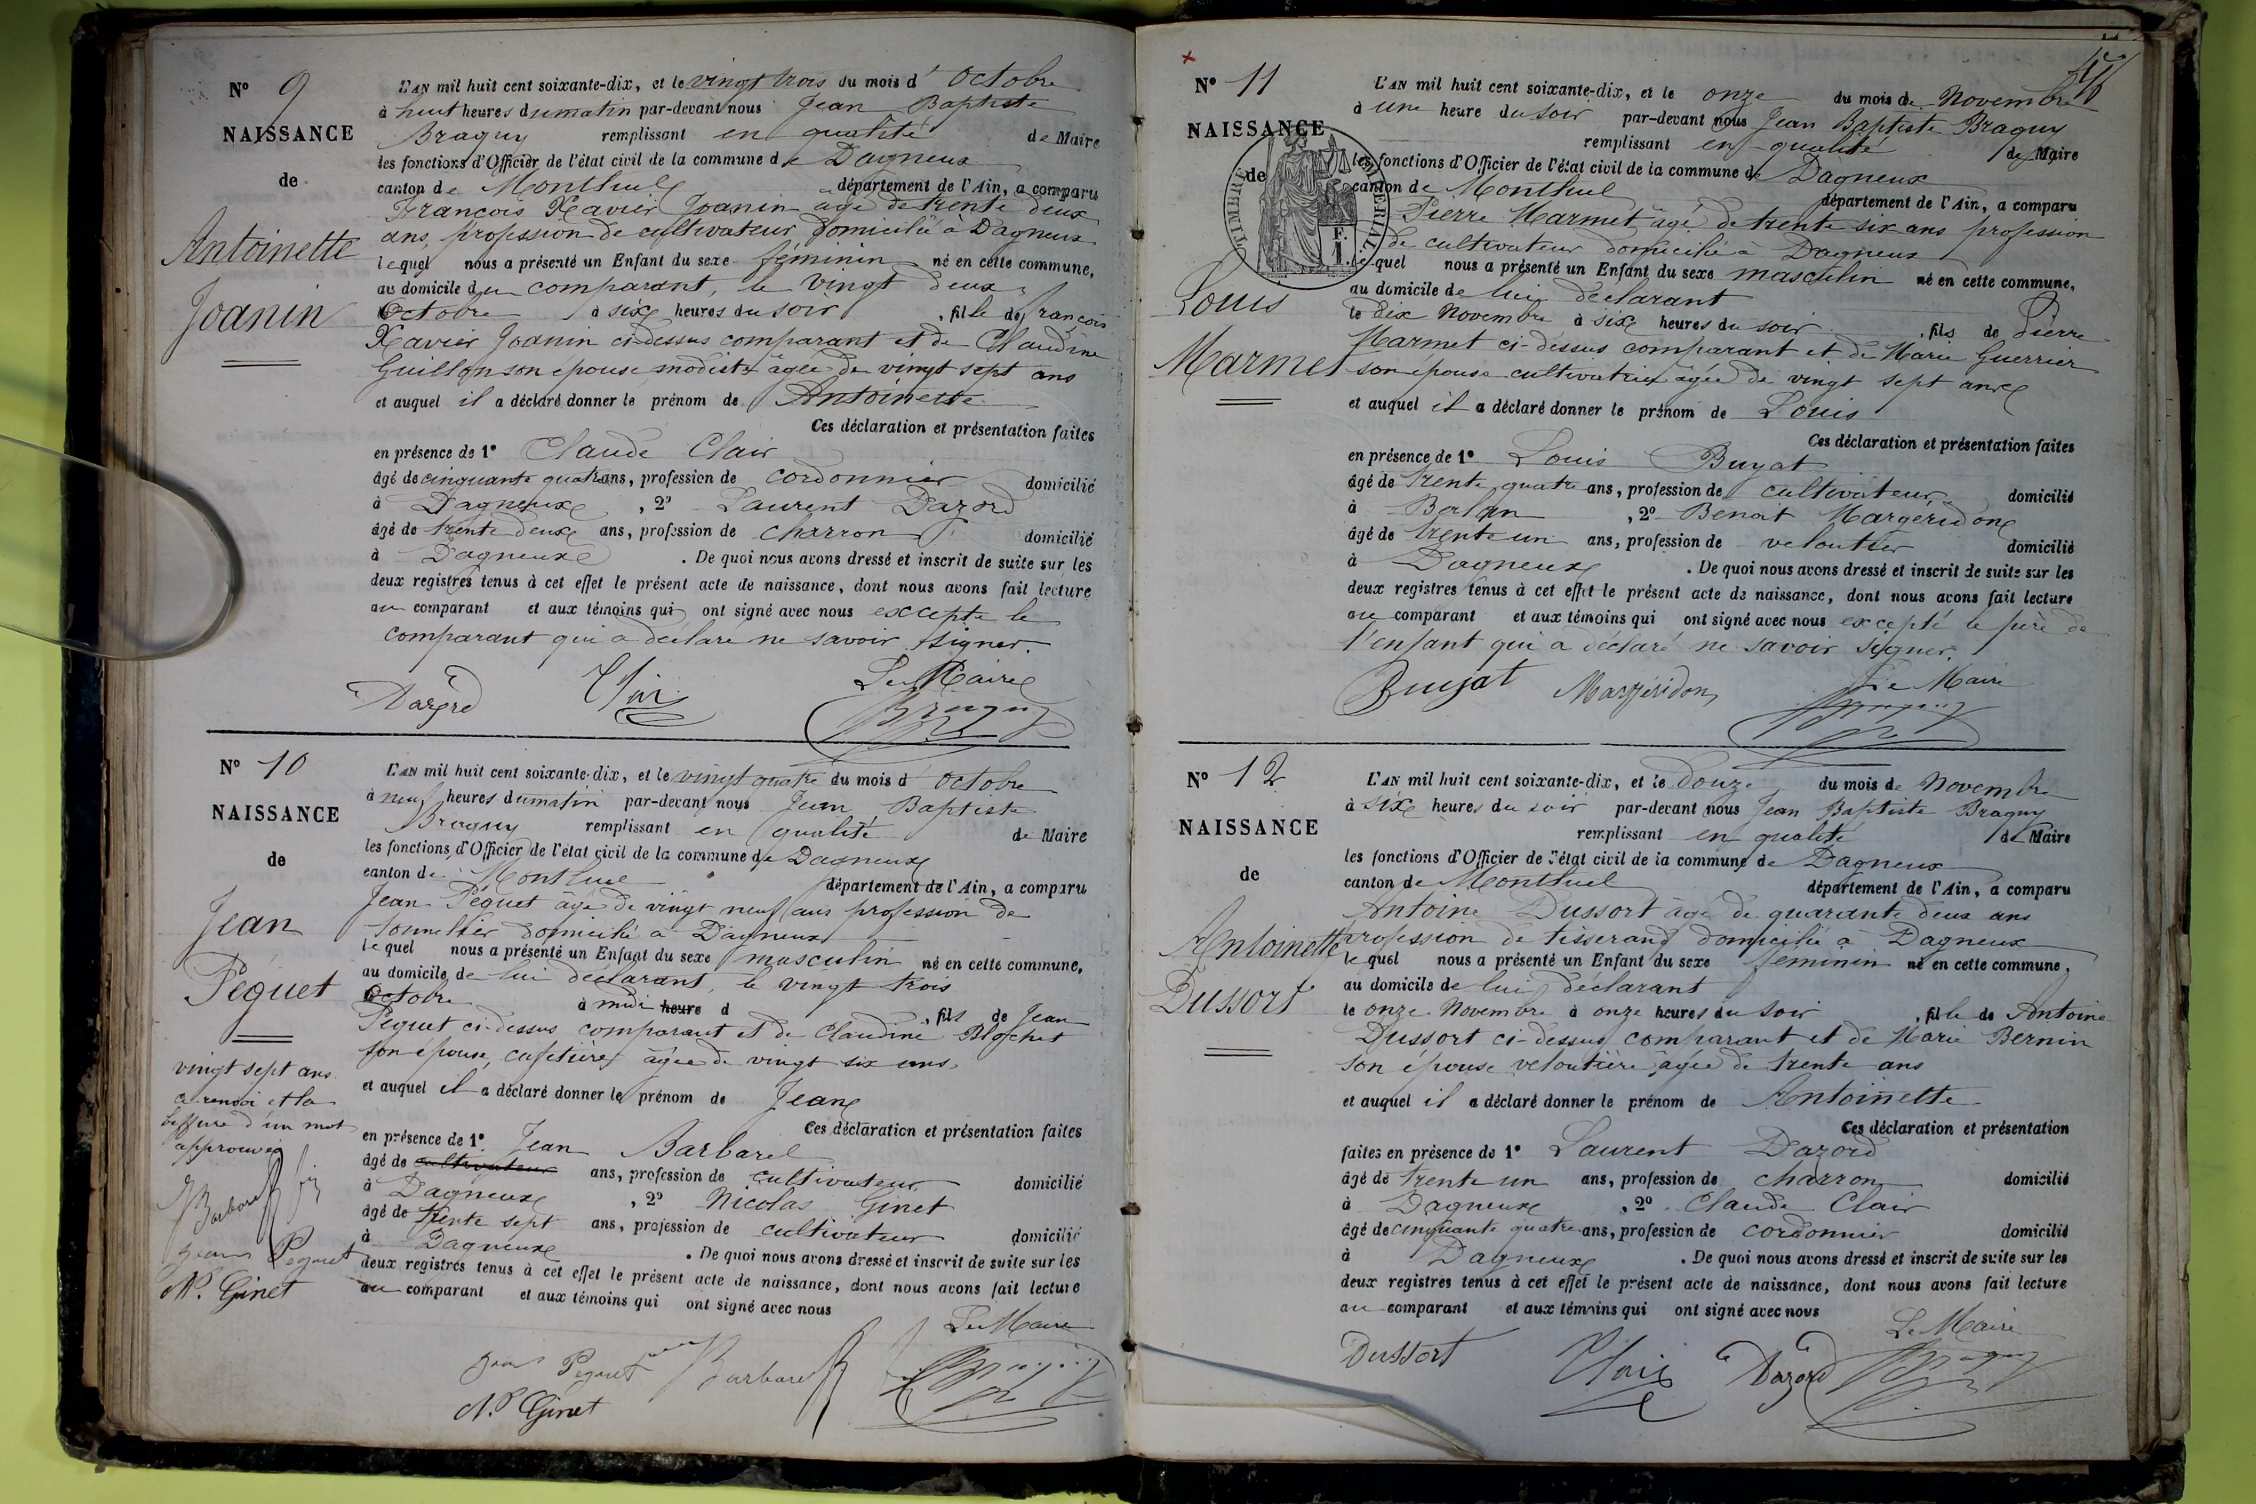 N° 9
NAISSANCE
de
Antoinette
Joanin
L'AN mil huit cent soixante-dix, et le vingt trois du mois d' Octobre
à huit heures du matin par-devant nous Jean Baptiste
Braguy remplissant en qualité de Maire
les fonctions d'Officier de l'état civil de la commune de Dagneux
canton de Montluel département de l'Ain, a comparu
François Xavier Joanin âgé de trente deux
ans, profession de cultivateur domicilié à Dagneux
lequel nous a présenté un Enfant du sexe féminin né en cette commune,
au domicile du comparant, le vingt deux
Octobre à six heures du soir, fille de François
Xavier Joanin ci-dessus comparant et de Claudine
Guillon son épouse modiste âgée de vingt sept ans
et auquel il a déclaré donner le prénom de Antoinette
Ces déclaration et présentation faites
en présence de 1° Claude Clair
âgé de cinquante quatre ans, profession de cordonnier domicilié
à Dagneux, 2° Laurent Dazord
âgé de trente deux ans, profession de charron domicilié
à Dagneux. De quoi nous avons dressé et inscrit de suite sur les
deux registres tenus à cet effet le présent acte de naissance, dont nous avons fait lecture
au comparant et aux témoins qui ont signé avec nous excepté le
comparant qui a déclaré ne savoir signer.
Le Maire
Dazord Clair Braguy
N° 10
NAISSANCE
de
Jean
Péguet
vingt sept ans
ce renvoi et la
biffure d'un mot
approuvés
JBarbarel
Jean Peguet
N. Ginet
L'AN mil huit cent soixante-dix, et le vingt quatre du mois d' Octobre
à neuf heures du matin par-devant nous Jean Baptiste
Braguy remplissant en qualité de Maire
les fonctions d'Officier de l'état civil de la commune de Dagneux
canton de Montluel département de l'Ain, a comparu
Jean Péguet âgé de vingt neuf ans profession de
tonnelier domicilié à Dagneux
lequel nous a présenté un Enfant du sexe masculin né en cette commune,
au domicile de lui déclarant, le vingt trois
Octobre à midi heure d , fils de Jean
Peguet ci-dessus comparant et de Claudine Blochet
son épouse, cafetière âgée de vingt six ans
et auquel il a déclaré donner le prénom de Jean
Ces déclaration et présentation faites
en présence de 1° Jean Barbarel
âgé de cultivateur ans, profession de cultivateur domicilié
à Dagneux, 2° Nicolas Ginet
âgé de trente sept ans, profession de cultivateur domicilié
à Dagneux. De quoi nous avons dressé et inscrit de suite sur les
deux registres tenus à cet effet le présent acte de naissance, dont nous avons fait lecture
au comparant et aux témoins qui ont signé avec nous
Le Maire
Jean Peguet JBarbarel Braguy
N. Ginet
N° 11
NAISSANCE
de
TIMBRE IMPERIAL
Louis
Marmet
L'AN mil huit cent soixante-dix, et le onze du mois de Novembre
à une heure du soir par-devant nous Jean Baptiste Braguy
remplissant en qualité de Maire
les fonctions d'Officier de l'état civil de la commune de Dagneux
canton de Montluel département de l'Ain, a comparu
Pierre Marmet âgé de trente six ans profession
de cultivateur domicilié à Dagneux
lequel nous a présenté un Enfant du sexe masculin né en cette commune,
au domicile de lui déclarant
le dix Novembre à six heures du soir, fils de Pierre
Marmet ci-dessus comparant et de Marie Guerrier
son épouse cultivatrice âgée de vingt sept ans
et auquel il a déclaré donner le prénom de Louis
Ces déclaration et présentation faites
en présence de 1° Louis Buyat
âgé de trente quatre ans, profession de cultivateur domicilié
à , 2° Benoit Margéridon
âgé de trente un ans, profession de veloutier domicilié
à Dagneux. De quoi nous avons dressé et inscrit de suite sur les
deux registres tenus à cet effet le présent acte de naissance, dont nous avons fait lecture
au comparant et aux témoins qui ont signé avec nous excepté le père de
l'enfant qui a déclaré ne savoir signer.
Le Maire
Buyat Margéridon Braguy
N° 12
NAISSANCE
de
Antoinette
Dussort
L'AN mil huit cent soixante-dix, et le douze du mois de Novembre
à six heures du soir par-devant nous Jean Baptiste Braguy
remplissant en qualité de Maire
les fonctions d'Officier de l'état civil de la commune de Dagneux
canton de Montluel département de l'Ain, a comparu
Antoine Dussort âgé de quarante deux ans
profession de tisserand domicilié à Dagneux
lequel nous a présenté un Enfant du sexe féminin né en cette commune,
au domicile de lui déclarant
le onze Novembre à onze heures du soir, fille de Antoine
Dussort ci-dessus comparant et de Marie Bernin
son épouse veloutière âgée de trente ans
et auquel il a déclaré donner le prénom de Antoinette
Ces déclaration et présentation
faites en présence de 1° Laurent Dazord
âgé de trente un ans, profession de charron domicilié
à Dagneux, 2° Claude Clair
âgé de cinquante quatre ans, profession de cordonnier domicilié
à Dagneux. De quoi nous avons dressé et inscrit de suite sur les
deux registres tenus à cet effet le présent acte de naissance, dont nous avons fait lecture
au comparant et aux témoins qui ont signé avec nous
Le Maire
Dussort Clair Dazord Braguy